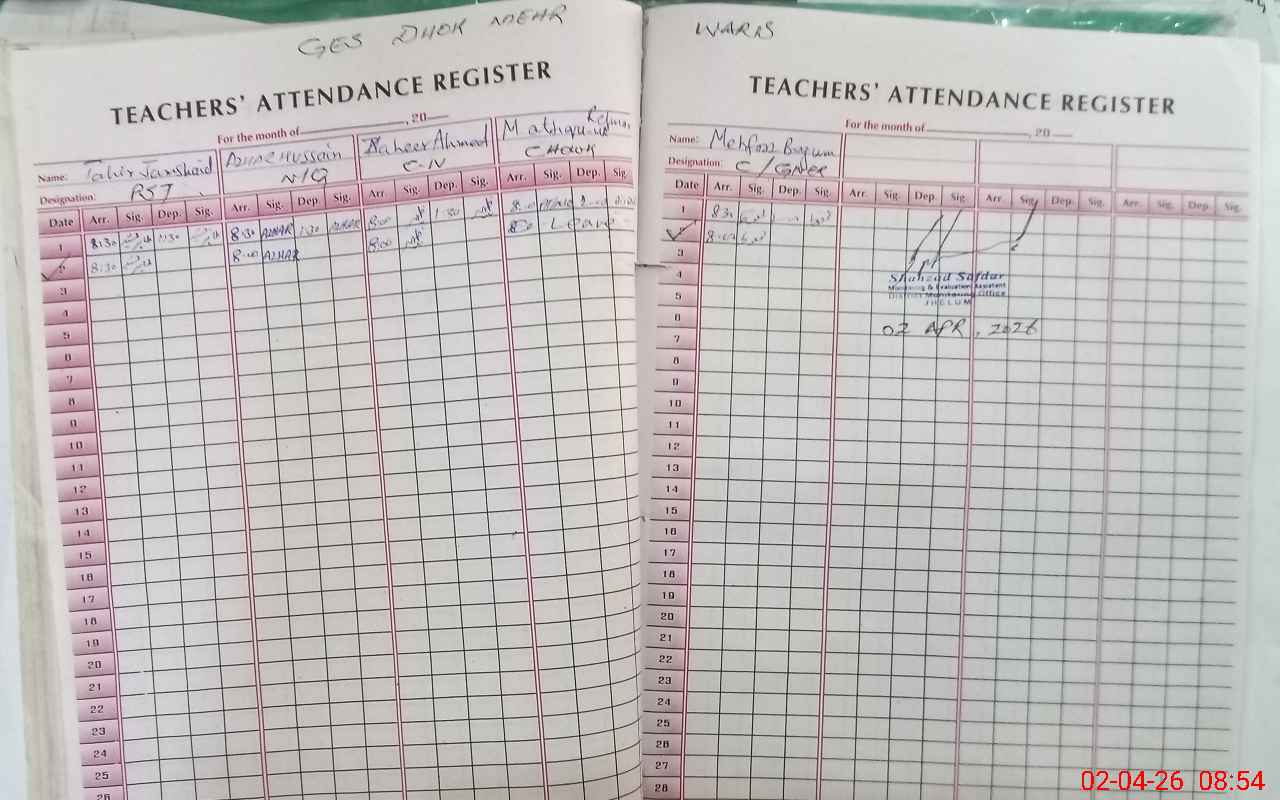 GES DHOK MEHR
TEACHERS' ATTENDANCE REGISTER
For the month of , 20
Name: Tahir Jamshaid AZHAR HUSSAIN Zaheer Ahmed Rehman
Designation: RST N/Q C-IV CHowk
Date Arr. Sig. Dep. Sig. Arr. Sig. Dep. Sig. Arr. Sig. Dep. Sig. Arr. Sig. Dep. Sig.
1 8:30 1:30 8:30 AZHAR 1:30 AZHAR 8:00 1:30
2 8:30 8:00 AZHAR 8:00 Leave
3
4
5
6
7
8
9
10
11
12
13
14
15
16
17
18
19
20
21
22
23
24
25
26
WARIS
TEACHERS' ATTENDANCE REGISTER
For the month of , 20
Name: Mehfooz Begum
Designation: C/
Date Arr. Sig. Dep. Sig. Arr. Sig. Dep. Sig. Arr. Sig. Dep. Sig. Arr. Sig. Dep. Sig.
1 830
2 8:00
3
4
5
6
7
8
9
10
11
12
13
14
15
16
17
18
19
20
21
22
23
24
25
26
27
28
Shahzad Safdar
Monitoring & Evaluation Assistant
District Monitoring Office
JHELUM
02 APR, 2026
02-04-26 08:54